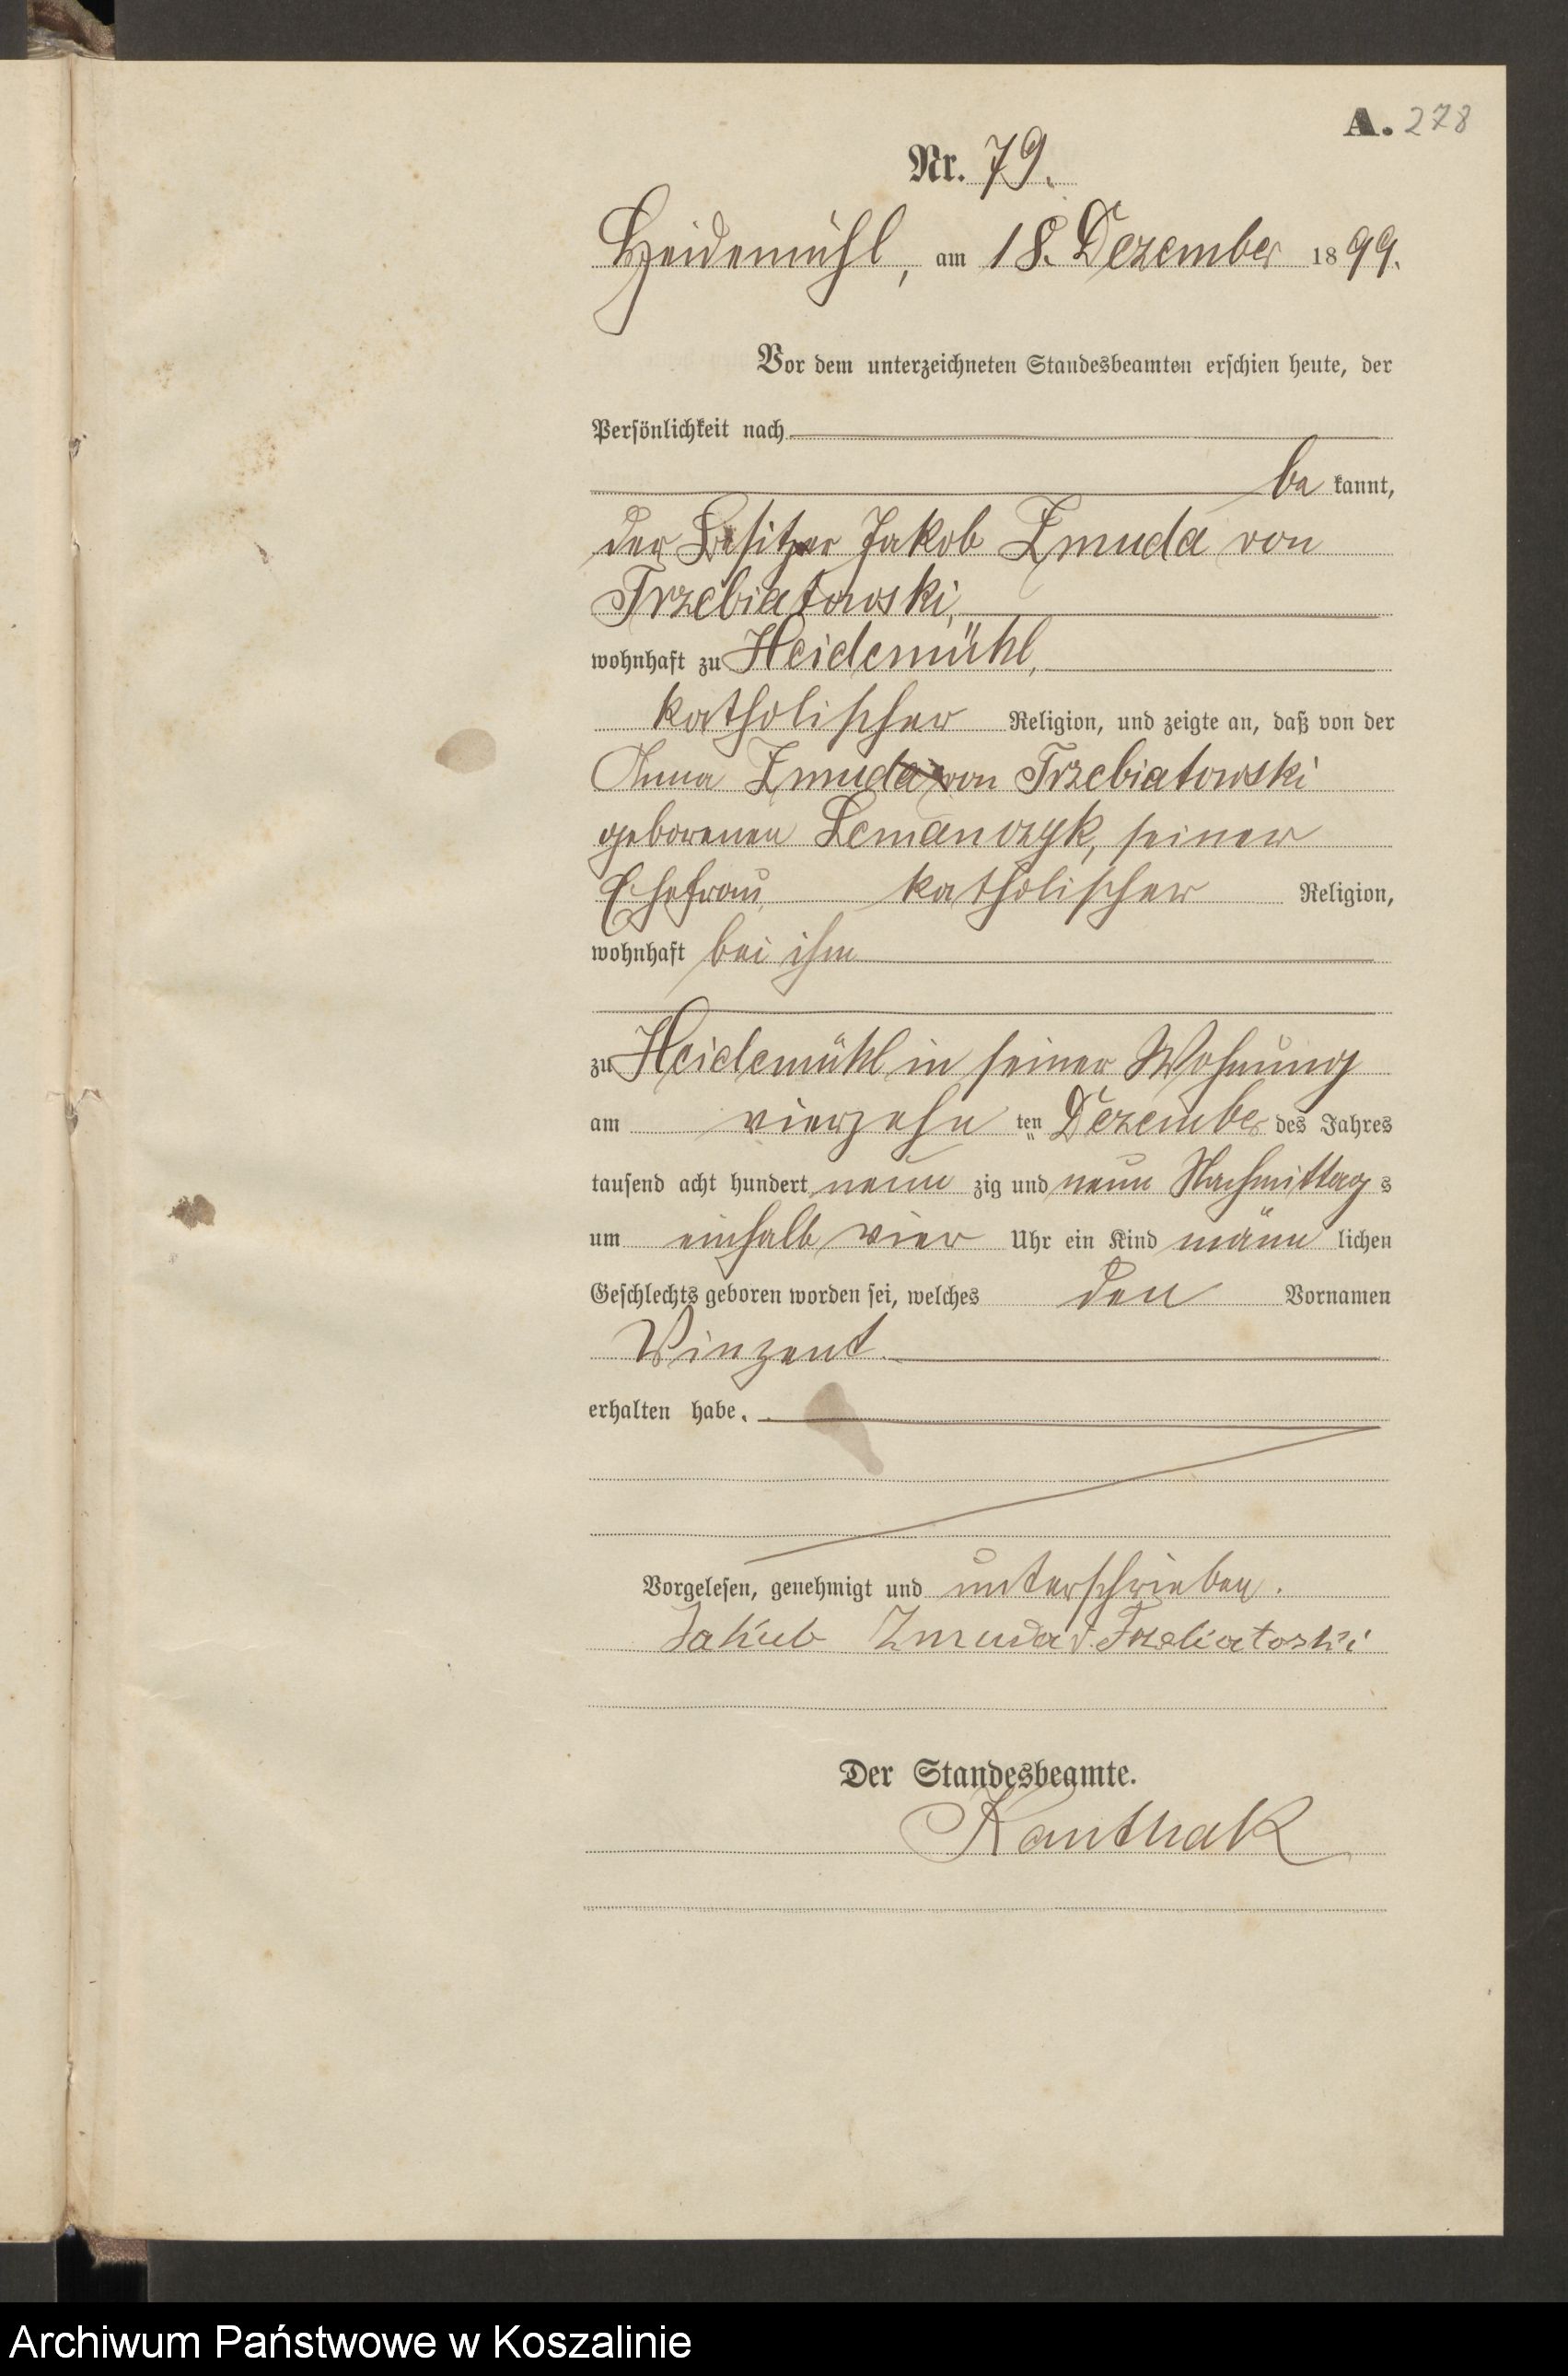 A. 278
Nr. 79.
Heidemühl, am 18. Dezember 1899.
Vor dem unterzeichneten Standesbeamten erschien heute, der
Persönlichkeit nach
be kannt,
der Besitzer Jakob Zmuda von
Trzebiatowski,
wohnhaft zu Heidemühl,
katholischer Religion, und zeigte an, daß von der
Anna Zmuda von Trzebiatowski
geborenen Lemanczyk, seiner
Ehefrau, katholischer Religion,
wohnhaft bei ihm
zu Heidemühl in seiner Wohnung
am vierzehn ten Dezember des Jahres
tausend acht hundert neun zig und neun Nachmittag s
um einhalb vier Uhr ein Kind männ lichen
Geschlechts geboren worden sei, welches den Vornamen
Vinzent.
erhalten habe.
Vorgelesen, genehmigt und unterschrieben.
Jakub Zmuda v. Trzebiatoski
Der Standesbeamte.
Kanthak
Archiwum Państwowe w Koszalinie